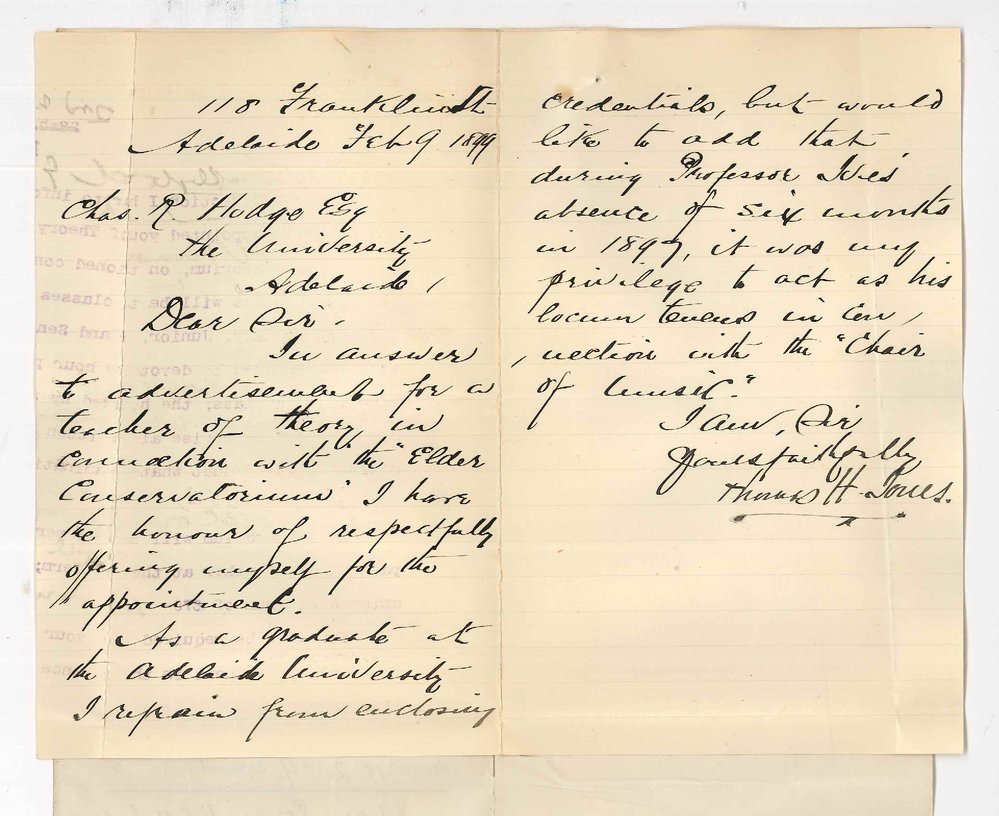 118 Franklin St
Adelaide Feb 9 1899
Chas. R Hodge Esq
the University
Adelaide,
Dear Sir.
In answer
to advertisement for a
teacher of theory in
connection with the "Elder
Conservatorium" I have
the honour of respectfully
offering myself for the
appointment.
As a graduate at
the Adelaide University
I refrain from enclosing
credentials, but would
like to add that
during Professor Ives'
absence of six months
in 1897, it was my
privilege to act as his
locum tenens in con,
, nection with the "Chair
of Music."
I am, Sir
Yours faithfully
Thomas H. Jones.